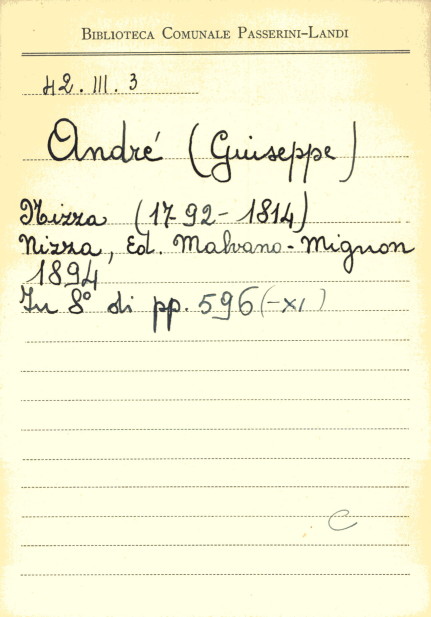 BIBLIOTECA COMUNALE PASSERINI-LANDI
42.III.3
André (Giuseppe)
Nizza (1792-1814)
Nizza, Ed. Malvano-Mignon
1894
In 8° di pp. 596 (-XI)
C